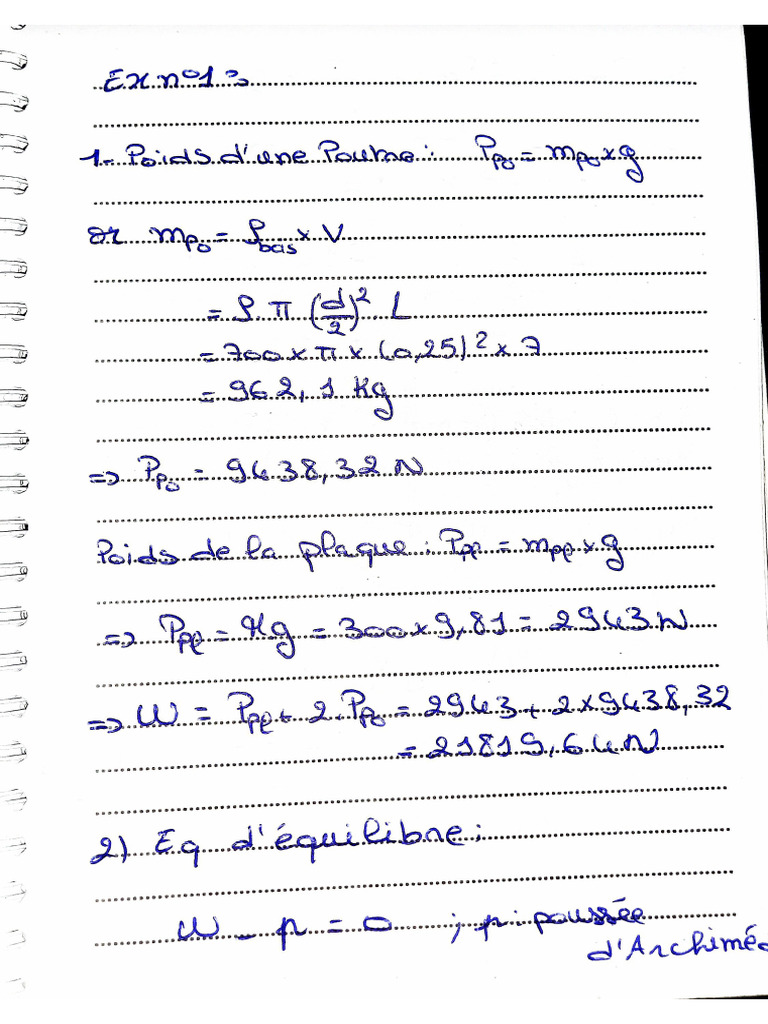 Ex n°1:
1- Poids d'une Poutre: P_po = m_po × g
or m_po = ρ_bas × V
= ρ π (d/2)² L
= 700 × π × (0,25)² × 7
= 962,1 Kg
=> P_po = 9438,32 N
Poids de la plaque: P_pl = m_pl × g
=> P_pl = Mg = 300 × 9,81 = 2943 N
=> W = P_pl + 2.P_po = 2943 + 2×9438,32
= 21819,64 N
2) Eq d'équilibre;
W - p = 0 ; p: poussée
d'Archiméd